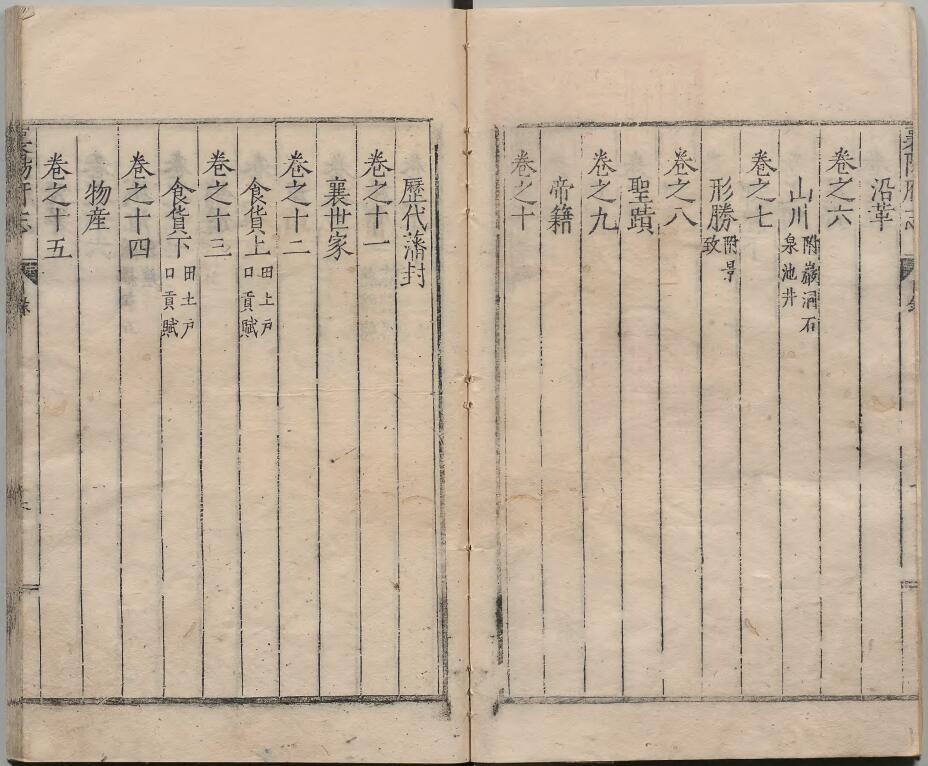 沿革
卷之六
山川 附巖洞石泉池井
卷之七
形勝 附景致
卷之八
聖蹟
卷之九
帝籍
卷之十
歷代藩封
卷之十一
襄世家
卷之十二
食貨上 田土戶口貢賦
卷之十三
食貨下 田土戶口貢賦
卷之十四
物産
卷之十五